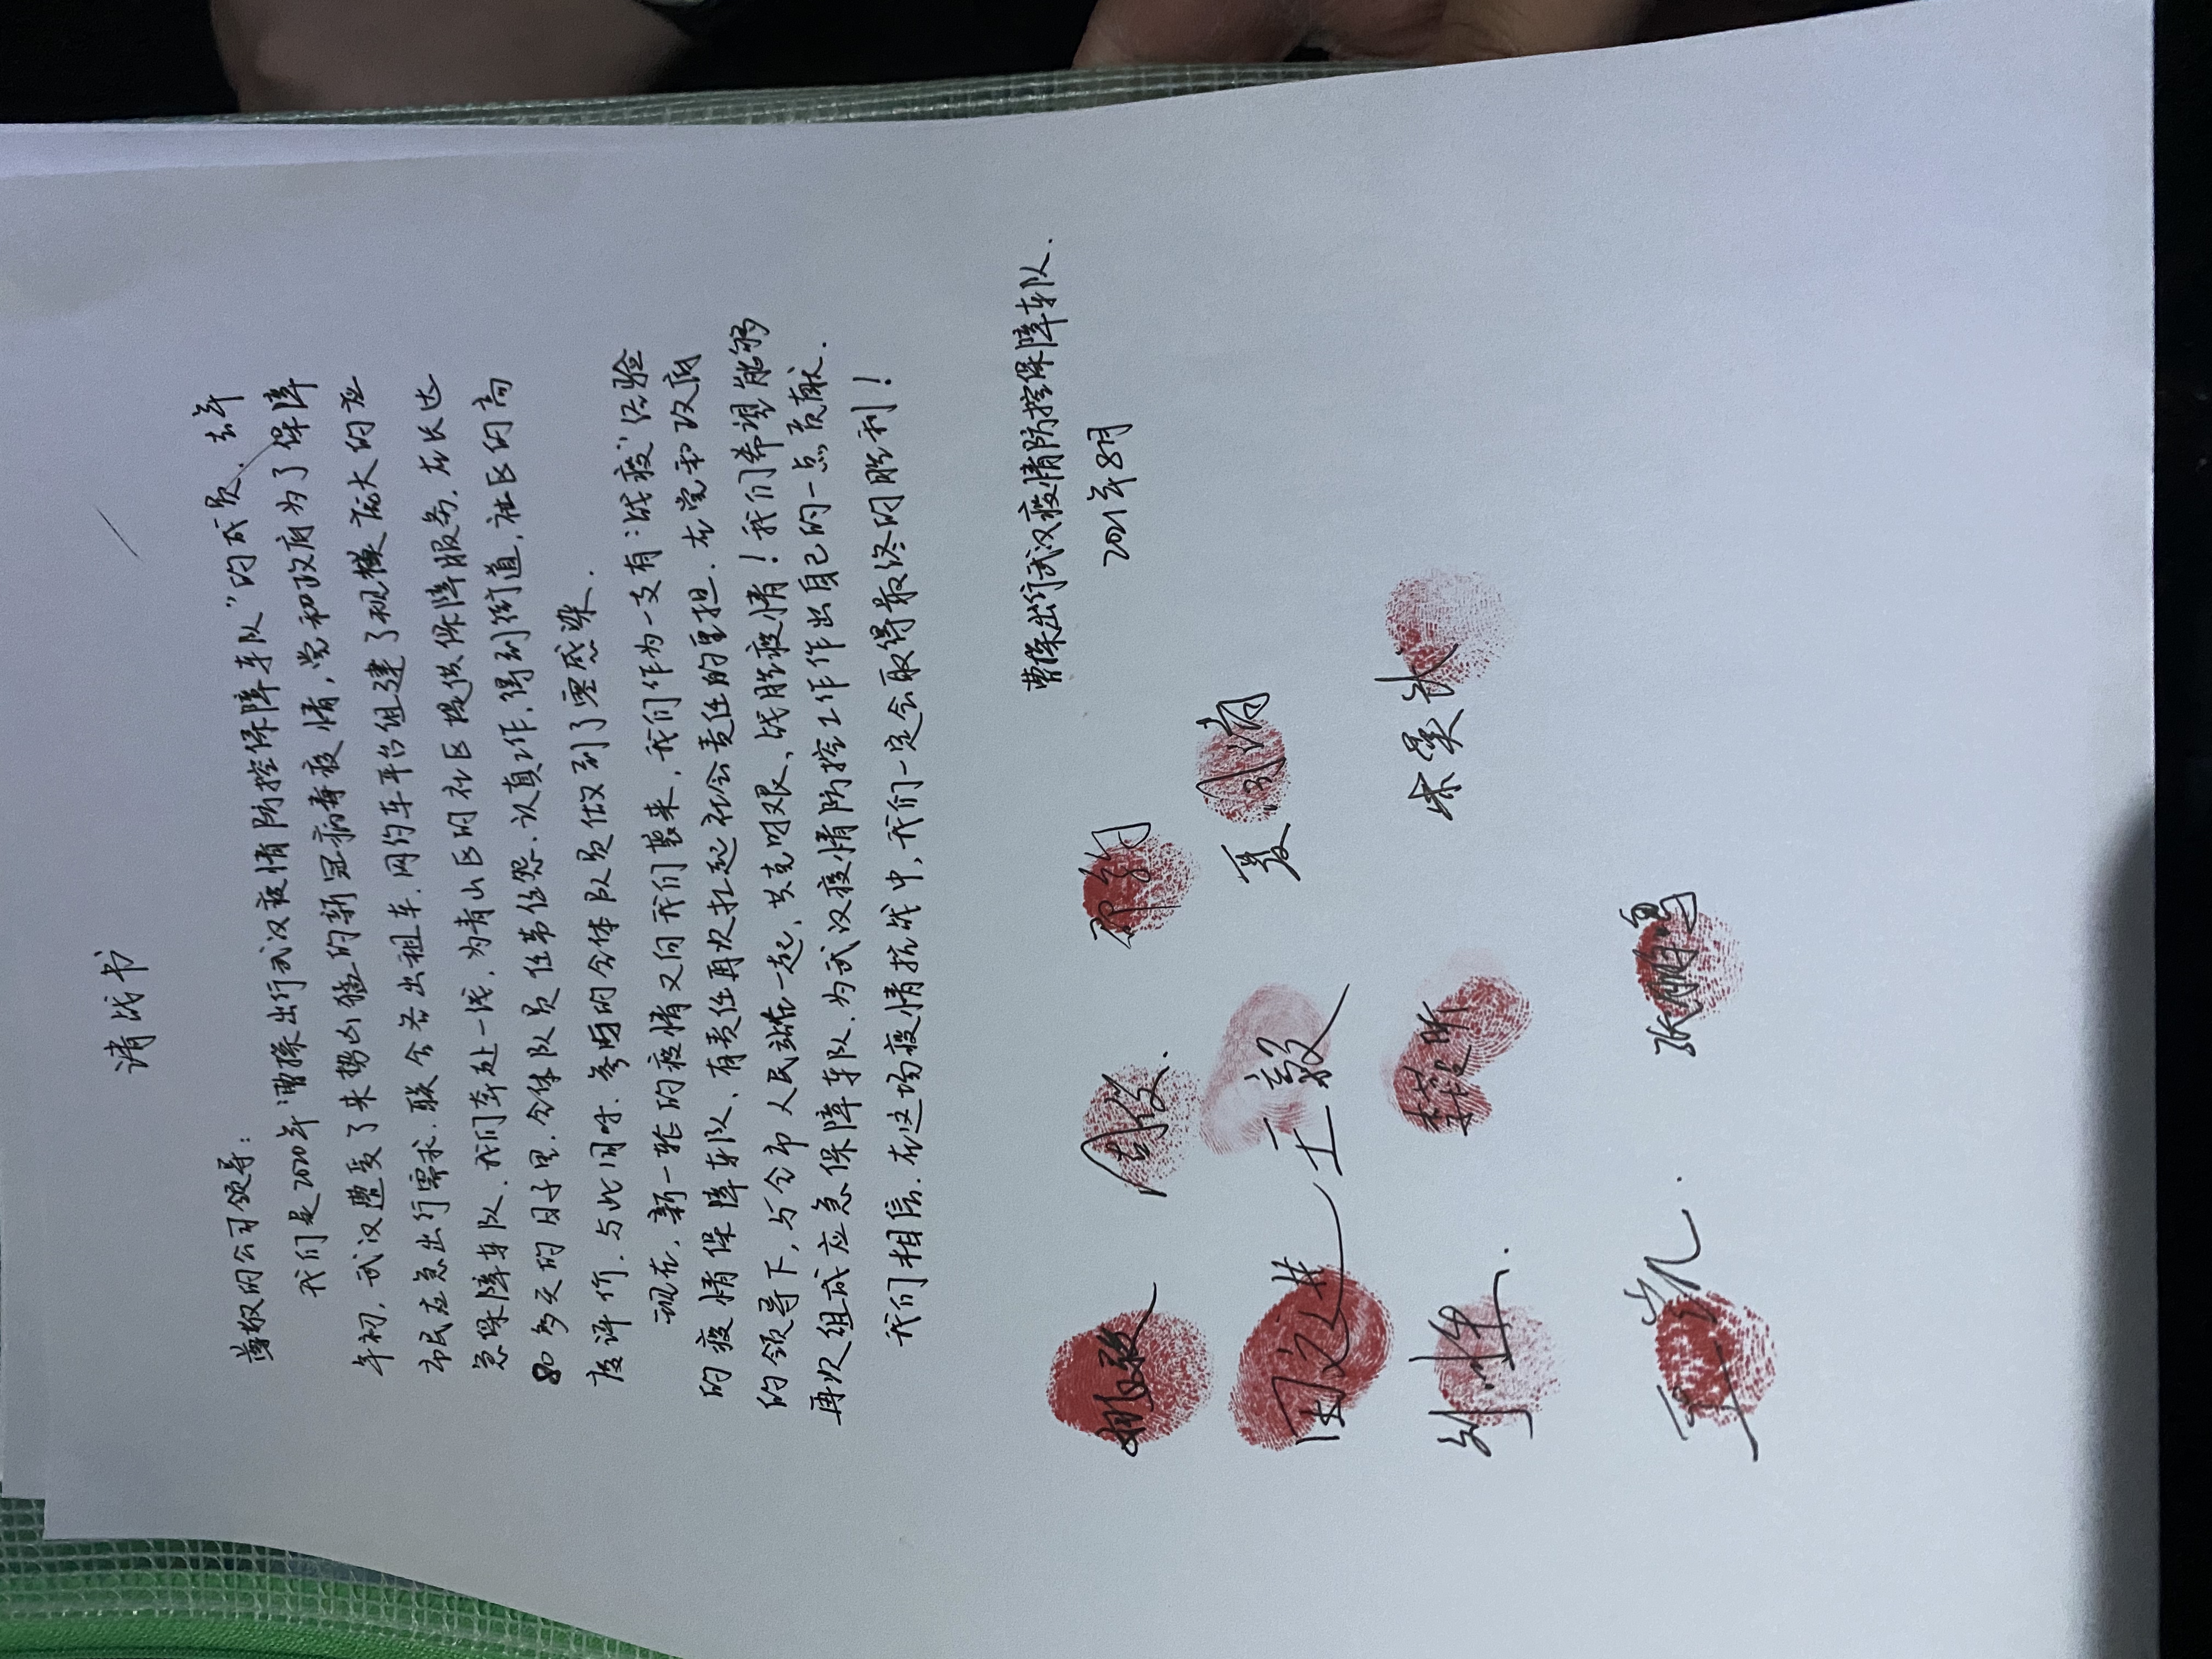 请战书
尊敬的公司领导:
我们是2020年“曹操出行武汉疫情防控保障车队”的成员.去年
年初,武汉遭受了来势凶猛的新冠病毒疫情,党和政府为了保障
市民应急出行需求.联合各出租车.网约车平台组建了规模庞大的应
急保障车队.我们奔赴一线,为青山区的社区提供保障服务.在长达
80多天的日子里.全体队员任劳任怨.认真工作.得到街道,社区的高
度评价.与此同时.参与的全体队员做到了零感染.
现在,新一轮的疫情又向我们袭来,我们作为一支有“战疫”经验
的疫情保障车队,有责任再次扛起社会责任的重担.在党和政府
的领导下,与全市人民站在一起,共克时艰、战胜疫情!我们希望能够
再次组成应急保障车队.为武汉疫情防控工作作出自己的一点贡献.
我们相信.在这场疫情抗战中,我们一定会取得最终的胜利!
曹操出行武汉疫情防控保障车队.
2021年8月
周俊.
夏清
王毅
李昕
张鹏